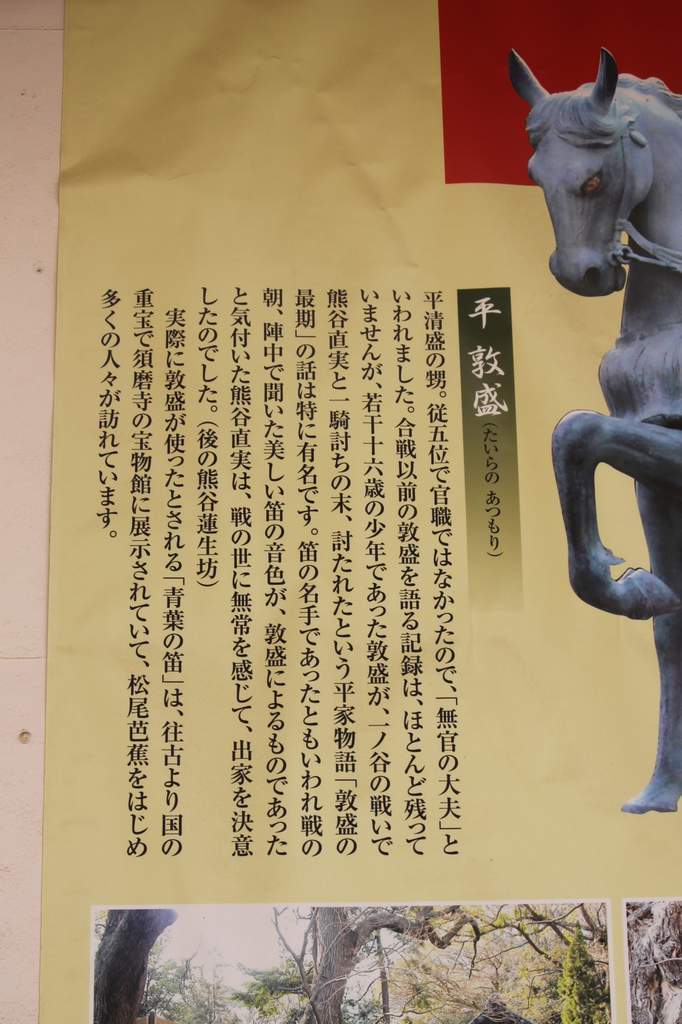 平 敦盛(たいらの あつもり)
平清盛の甥。従五位で官職ではなかったので、「無官の大夫」と
いわれました。合戦以前の敦盛を語る記録は、ほとんど残って
いませんが、若干十六歳の少年であった敦盛が、一ノ谷の戦いで
熊谷直実と一騎討ちの末、討たれたという平家物語「敦盛の
最期」の話は特に有名です。笛の名手であったともいわれ戦の
朝、陣中で聞いた美しい笛の音色が、敦盛によるものであった
と気付いた熊谷直実は、戦の世に無常を感じて、出家を決意
したのでした。(後の熊谷蓮生坊)
実際に敦盛が使ったとされる「青葉の笛」は、往古より国の
重宝で須磨寺の宝物館に展示されていて、松尾芭蕉をはじめ
多くの人々が訪れています。